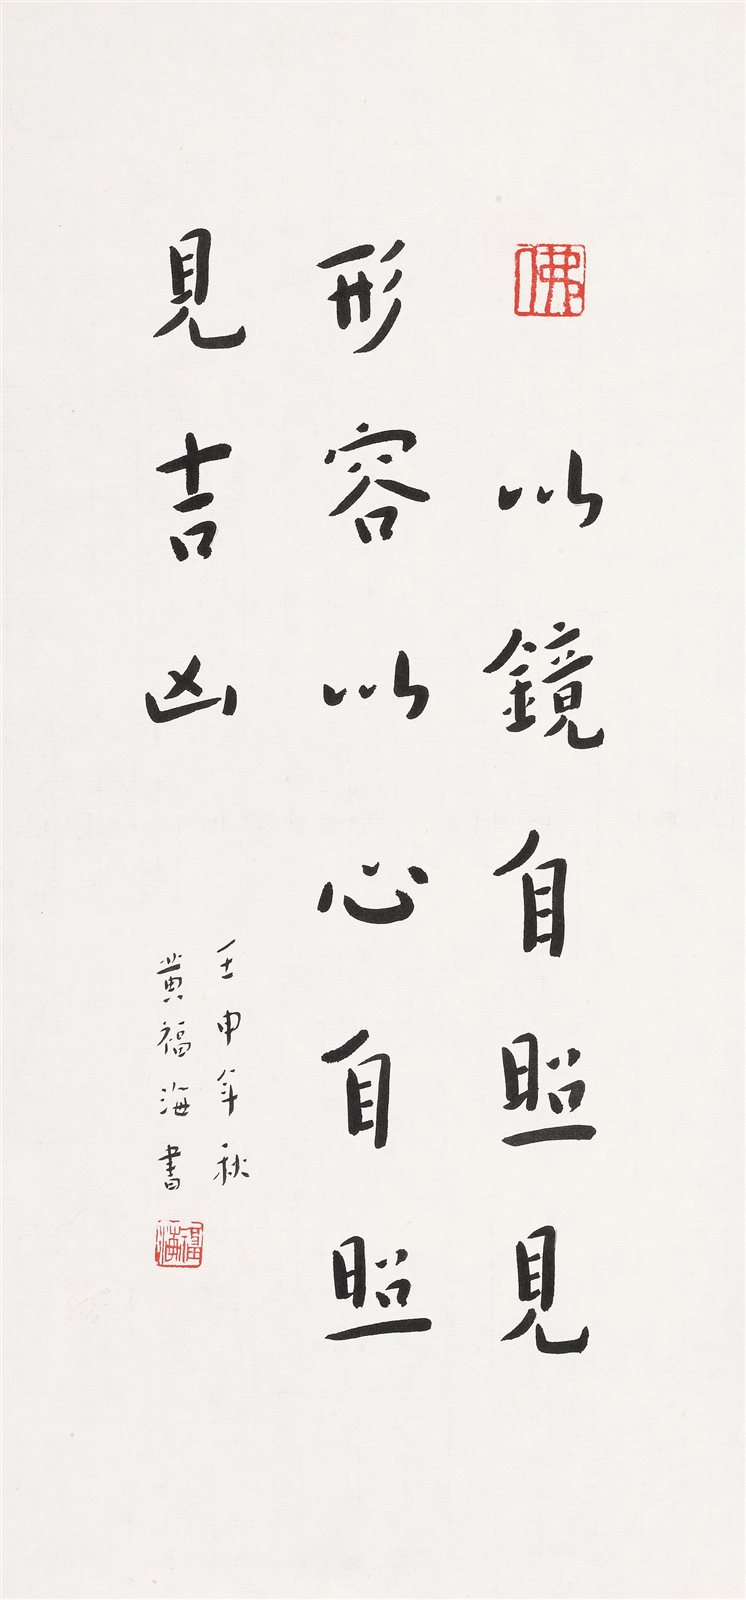 佛
以鏡自照見
形容以心自照
見吉凶
壬申年秋
黃福海書
福海